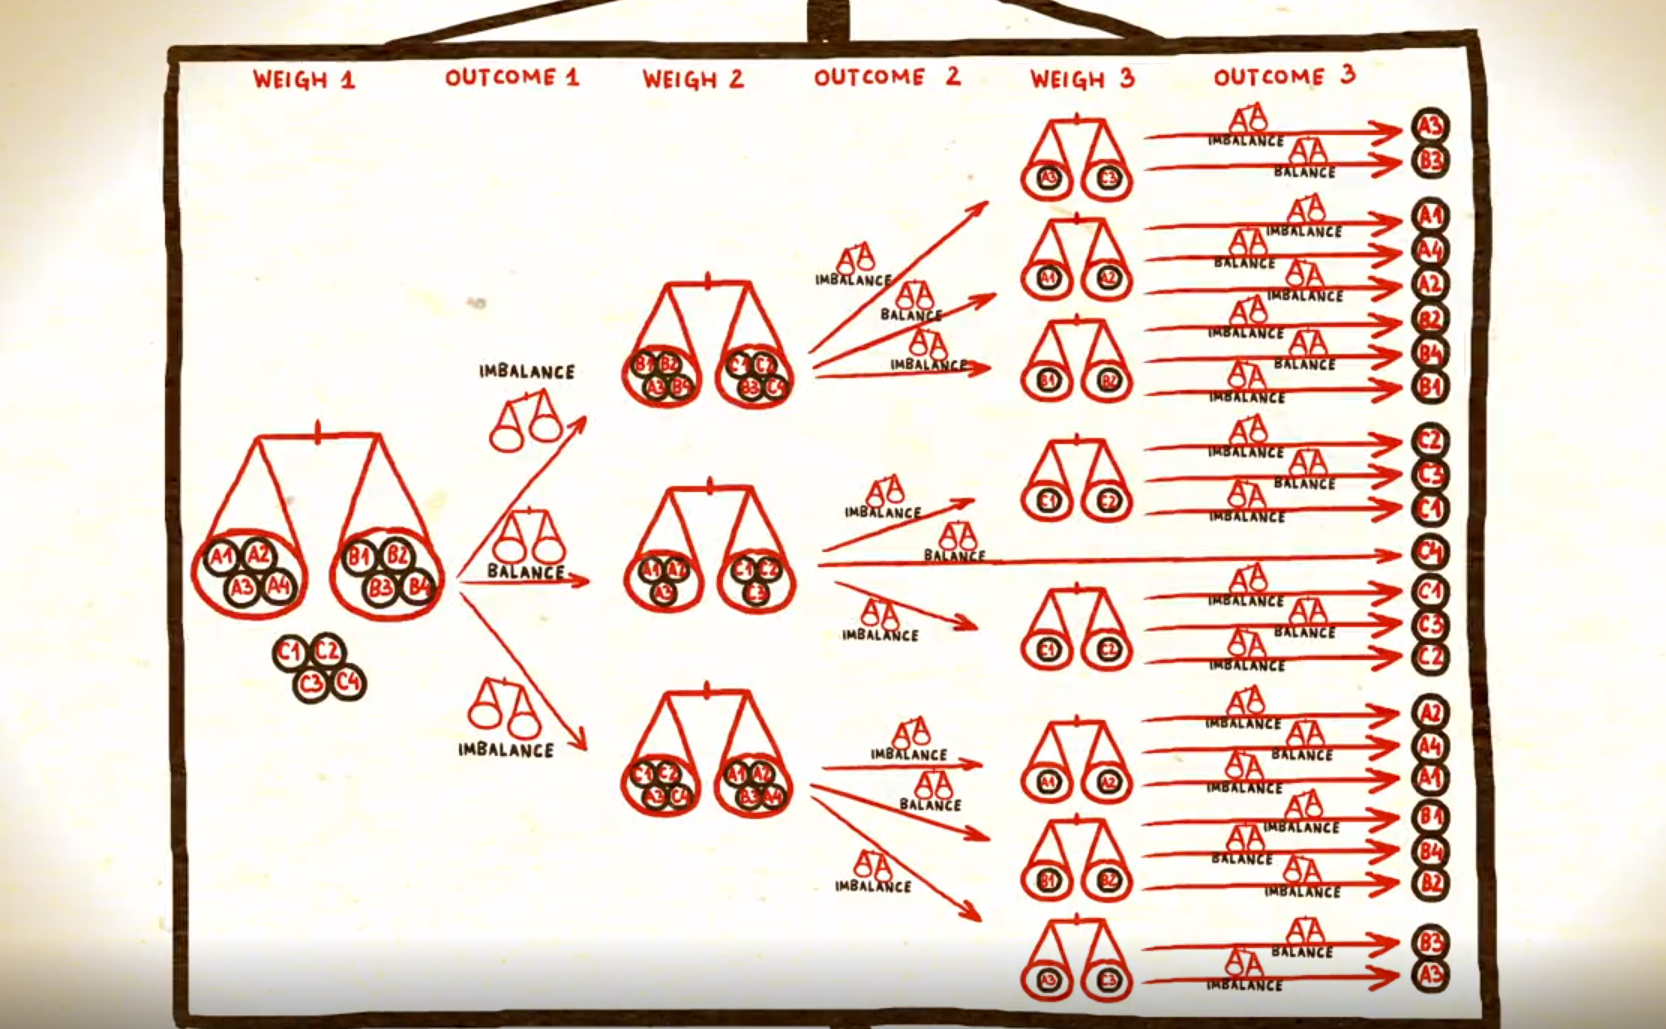 WEIGH 1 OUTCOME 1 WEIGH 2 OUTCOME 2 WEIGH 3 OUTCOME 3
A1 A2
A3 A4
B1 B2
B3 B4
C1 C2
C3 C4
IMBALANCE
BALANCE
IMBALANCE
B1 B2
A3 B4
C1 C2
B3 C4
A1 A2
A3
C1 C2
C3
C1 C2
A3 C4
A1 A2
B3 A4
IMBALANCE
BALANCE
IMBALANCE
IMBALANCE
BALANCE
IMBALANCE
IMBALANCE
BALANCE
IMBALANCE
A3 C3
IMBALANCE A3
BALANCE B3
A1 A2
IMBALANCE A1
BALANCE A4
IMBALANCE A2
B1 B2
IMBALANCE B2
BALANCE B4
IMBALANCE B1
C1 C2
IMBALANCE C2
BALANCE C3
IMBALANCE C1
C4
C1 C2
IMBALANCE C1
BALANCE C3
IMBALANCE C2
A1 A2
IMBALANCE A2
BALANCE A4
IMBALANCE A1
B1 B2
IMBALANCE B1
BALANCE B4
IMBALANCE B2
A3 C3
BALANCE B3
IMBALANCE A3